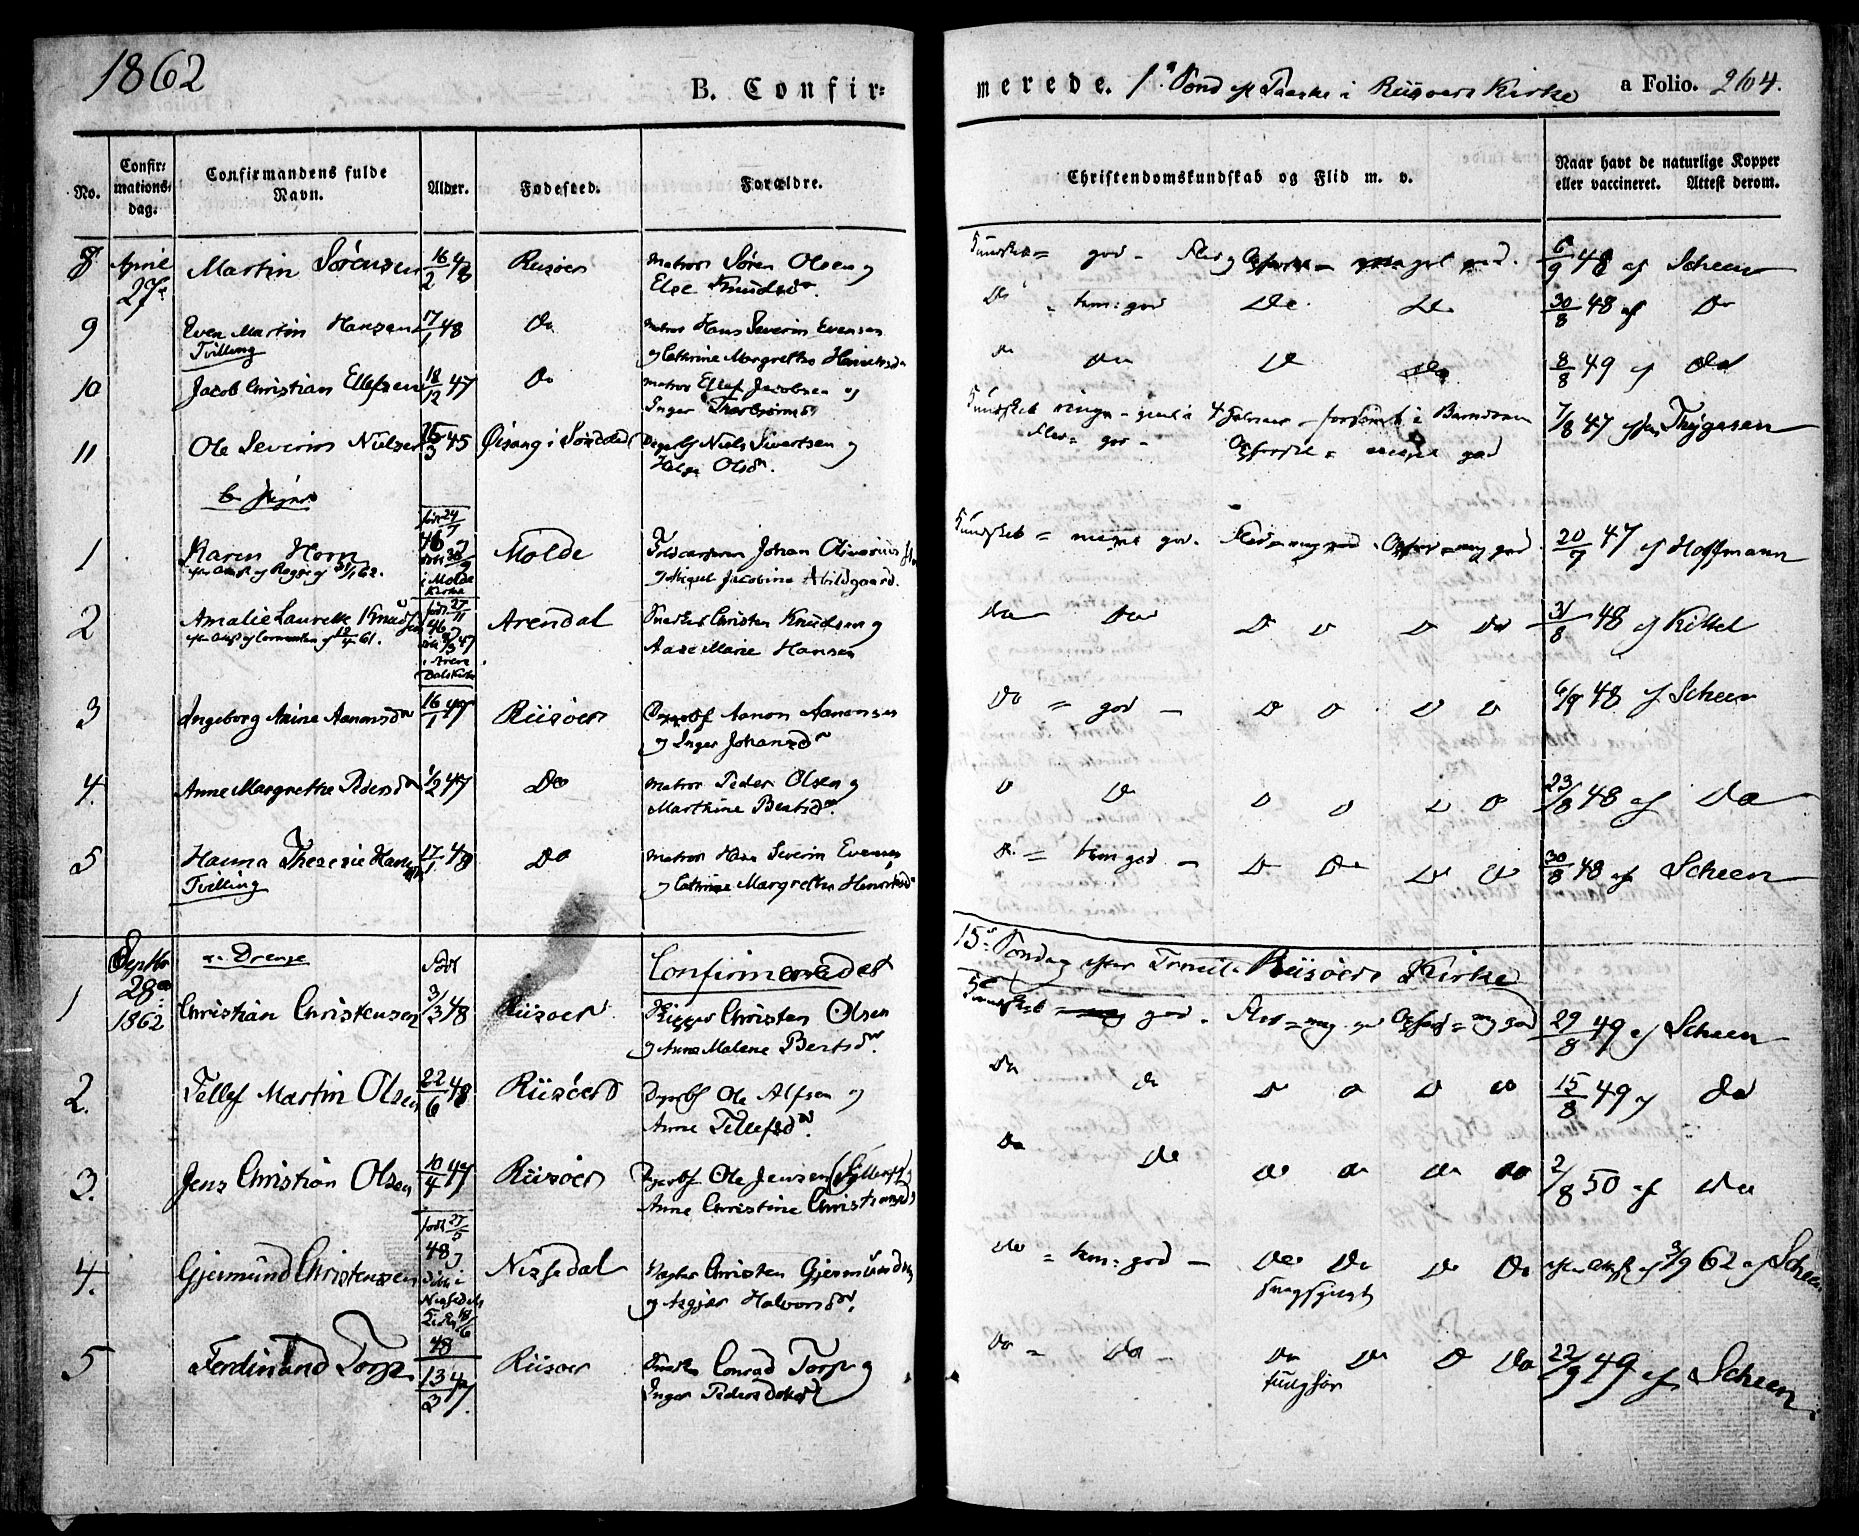 1862
B. Confir=
merede. 1ste Sönd ef Paaske i Riisøers Kirke a Folio. 264.
No.
Confir=
mations=
dag.
Confirmandens fulde
Navn.
Alder.
Fødested.
Forældre.
Christendomskundskab og Flid m. v.
Naar havt de naturlige Kopper
eller vaccineret. Attest derom.
8 April 27de Martin Sörensen 16/2 48 Riisöer Matros Sören Olsen og
Else Knudsd. Kundskab = god - Flid og Opförsel = meget god. 6/9 48 af Scheen
9 Even Martin Hansen 17/1 48 Do Matros Hans Severin Evensen
Tvilling og Cathrine Margrethe Henriksd. Do tem: god Do Do 30/8 48 af Do
10 Jacob Christian Ellefsen 18/12 47 Do Matros Ellef Jacobsen og
Inger Thorbjørnsd Do Do Do Do 8/8 49 af Do
11 Ole Severin Nielsen 25/3 45 Øisang i Søndeled Niels Sivertsen og
Helge Olsd. Kundskab ringe - forsømt i Barndommen
Flid = god - Opförsel = meget god 7/8 47 af Thygesen
b. Piger
1 Karen Horn født 24/7 46 Molde Johan Oliverius
i Molde Kirke Jacobine Abildgaard. Kundskab = meget god. Flid = mg god. Opför = mg god 20/7 47 af Hoffmann
2 Amalie Laurette Knudsen født 27/11 46 Arendal Snedker Christen Knudsen og
Aase Marie Hansen Do Do Do Do Do Do 31/8 48 af Kittel
3 Ingeborg Anine Aanonsd 16/1 47 Riisöer Aanon Aanonsen
og Inger Johansd Do = god - Do Do Do Do 6/9 48 af Scheen
4. Anne Margrethe Pedersd 1/2 47 Do Matros Peder Olsen og
Marthine Bentsd. Do Do Do Do Do Do 23/8 48 af Do
5 Hanna Theresie Hansd 17/1 48 Do Matros Hans Severin Evensen
Tvilling og Cathrine Margrethe Henriksd Do = tem god - Do Do Do Do 30/8 48 af Scheen
Septbr 28de 1862 a. Drenge Født Confirmerede 15de Söndag efter Trinit. i Riisöers Kirke
1 Christian Christensen 3/3 48 Riisöer Skipper Christen Olsen
og Anne Malene Bentsd. Kundskab = god. Flid = meg. god Opförs = mg god 29/8 49 af Scheen
2. Tellef Martin Olsen 22/6 48 Riisöer Ole Alfsen og
Anne Tellefsd. Do Do Do Do Do Do 15/8 49 af Do
3. Jens Christian Olsen 10/4 47 Riisöer Ole Jensen
Anne Christine Christiansd Do Do Do Do Do Do 2/8 50 af Do
4. Gjermund Christensen født 27/5 48 Nissedal Christen Gjermundsen
og Asgjær Halvorsd. Do = tem: god - Do Do Do Do efter Attest af 3/9 62 af Scheen
5 Ferdinand Torp 13/3 47 Riisöer Conrad Torp og
Inger Pedersdatter Do = Do - Do Do Do Do 22/9 49 af Scheen